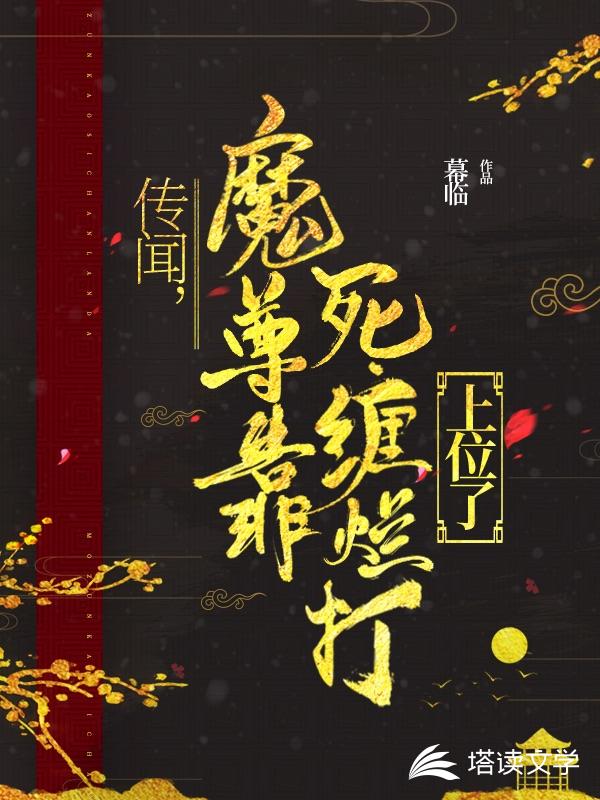 传闻，
魔尊靠
死缠烂打
上位了
幕临
作品
ZUNKAOSICHANLANDA
塔读文学